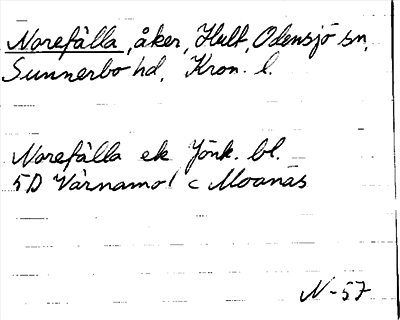 Norefälla, åker, Hult, Odensjö sn,
Sunnerbo hd, Kron. l.
Norefälla ek Jönk. bl.
5D Värnamo / c Moanäs
N-57